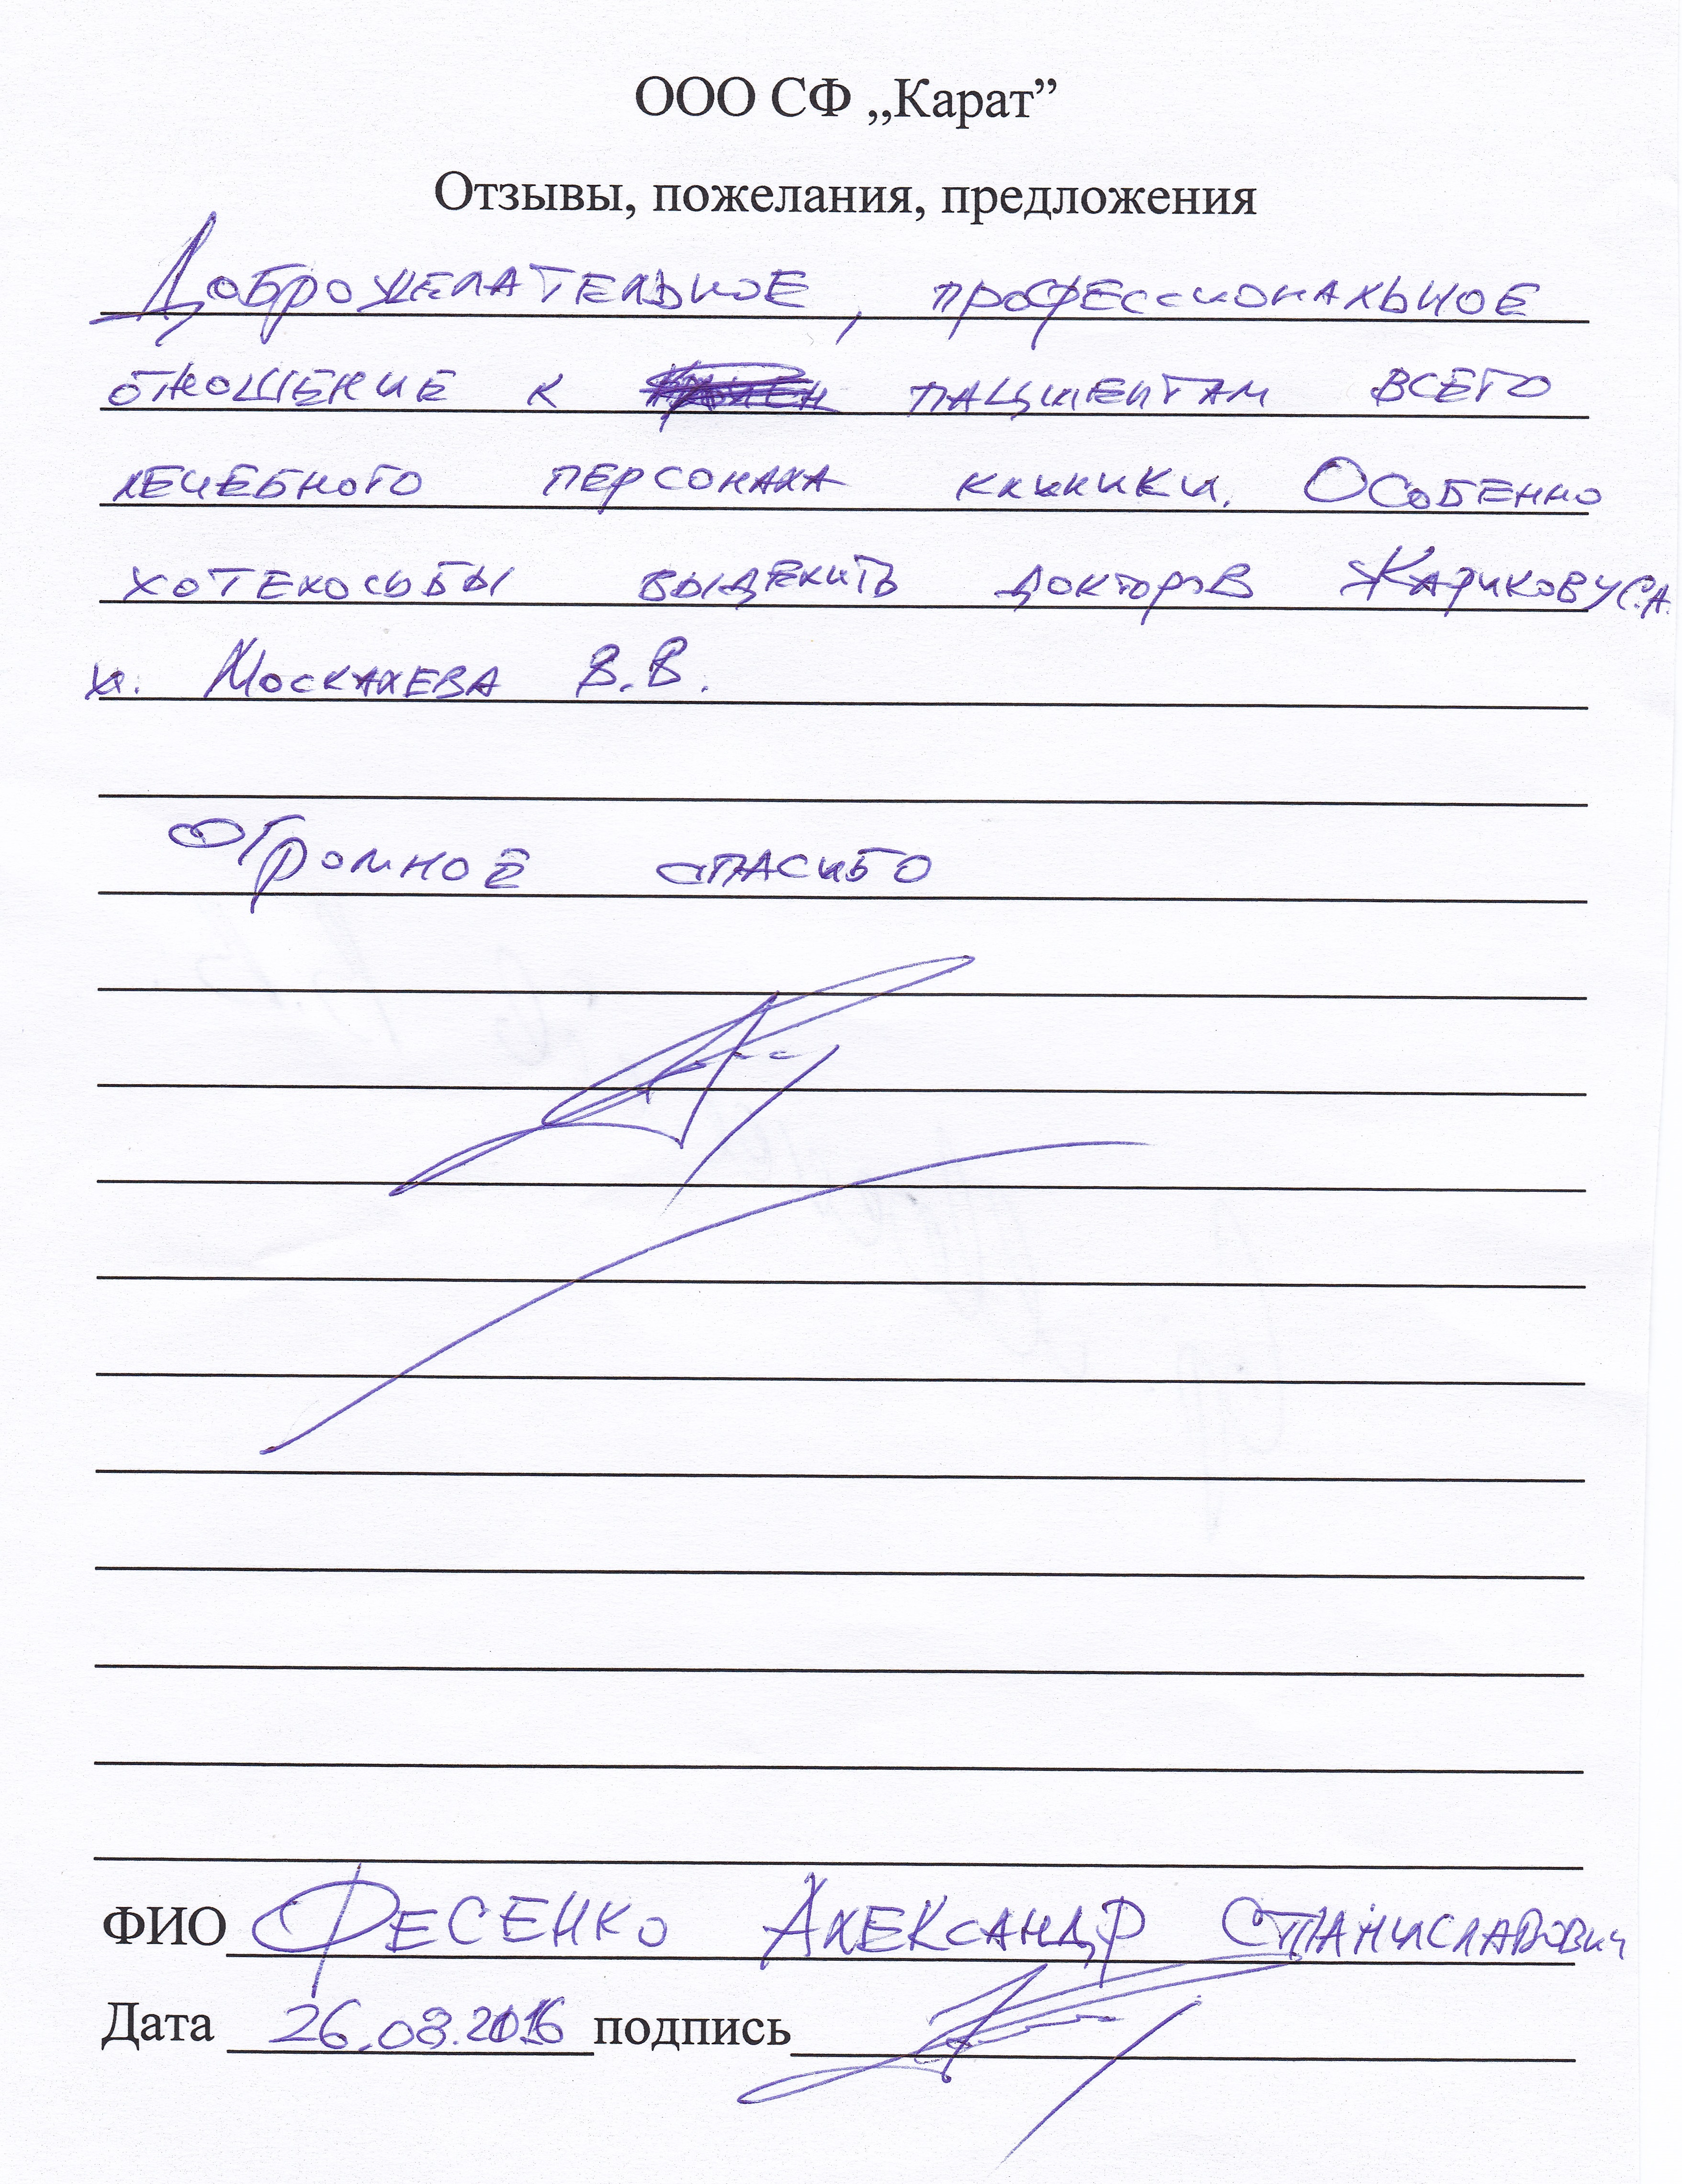 ООО СФ „Карат”
Отзывы, пожелания, предложения
Доброжелательное, профессиональное
отношение к пациентам всего
лечебного персонала клиники. Особенно
хотелосьбы выделить докторов Жарикову С.А.
и. Москалева В.В.
Огромное спасибо
ФИО Фесенко Александр Станиславович
Дата 26.08.2016 подпись